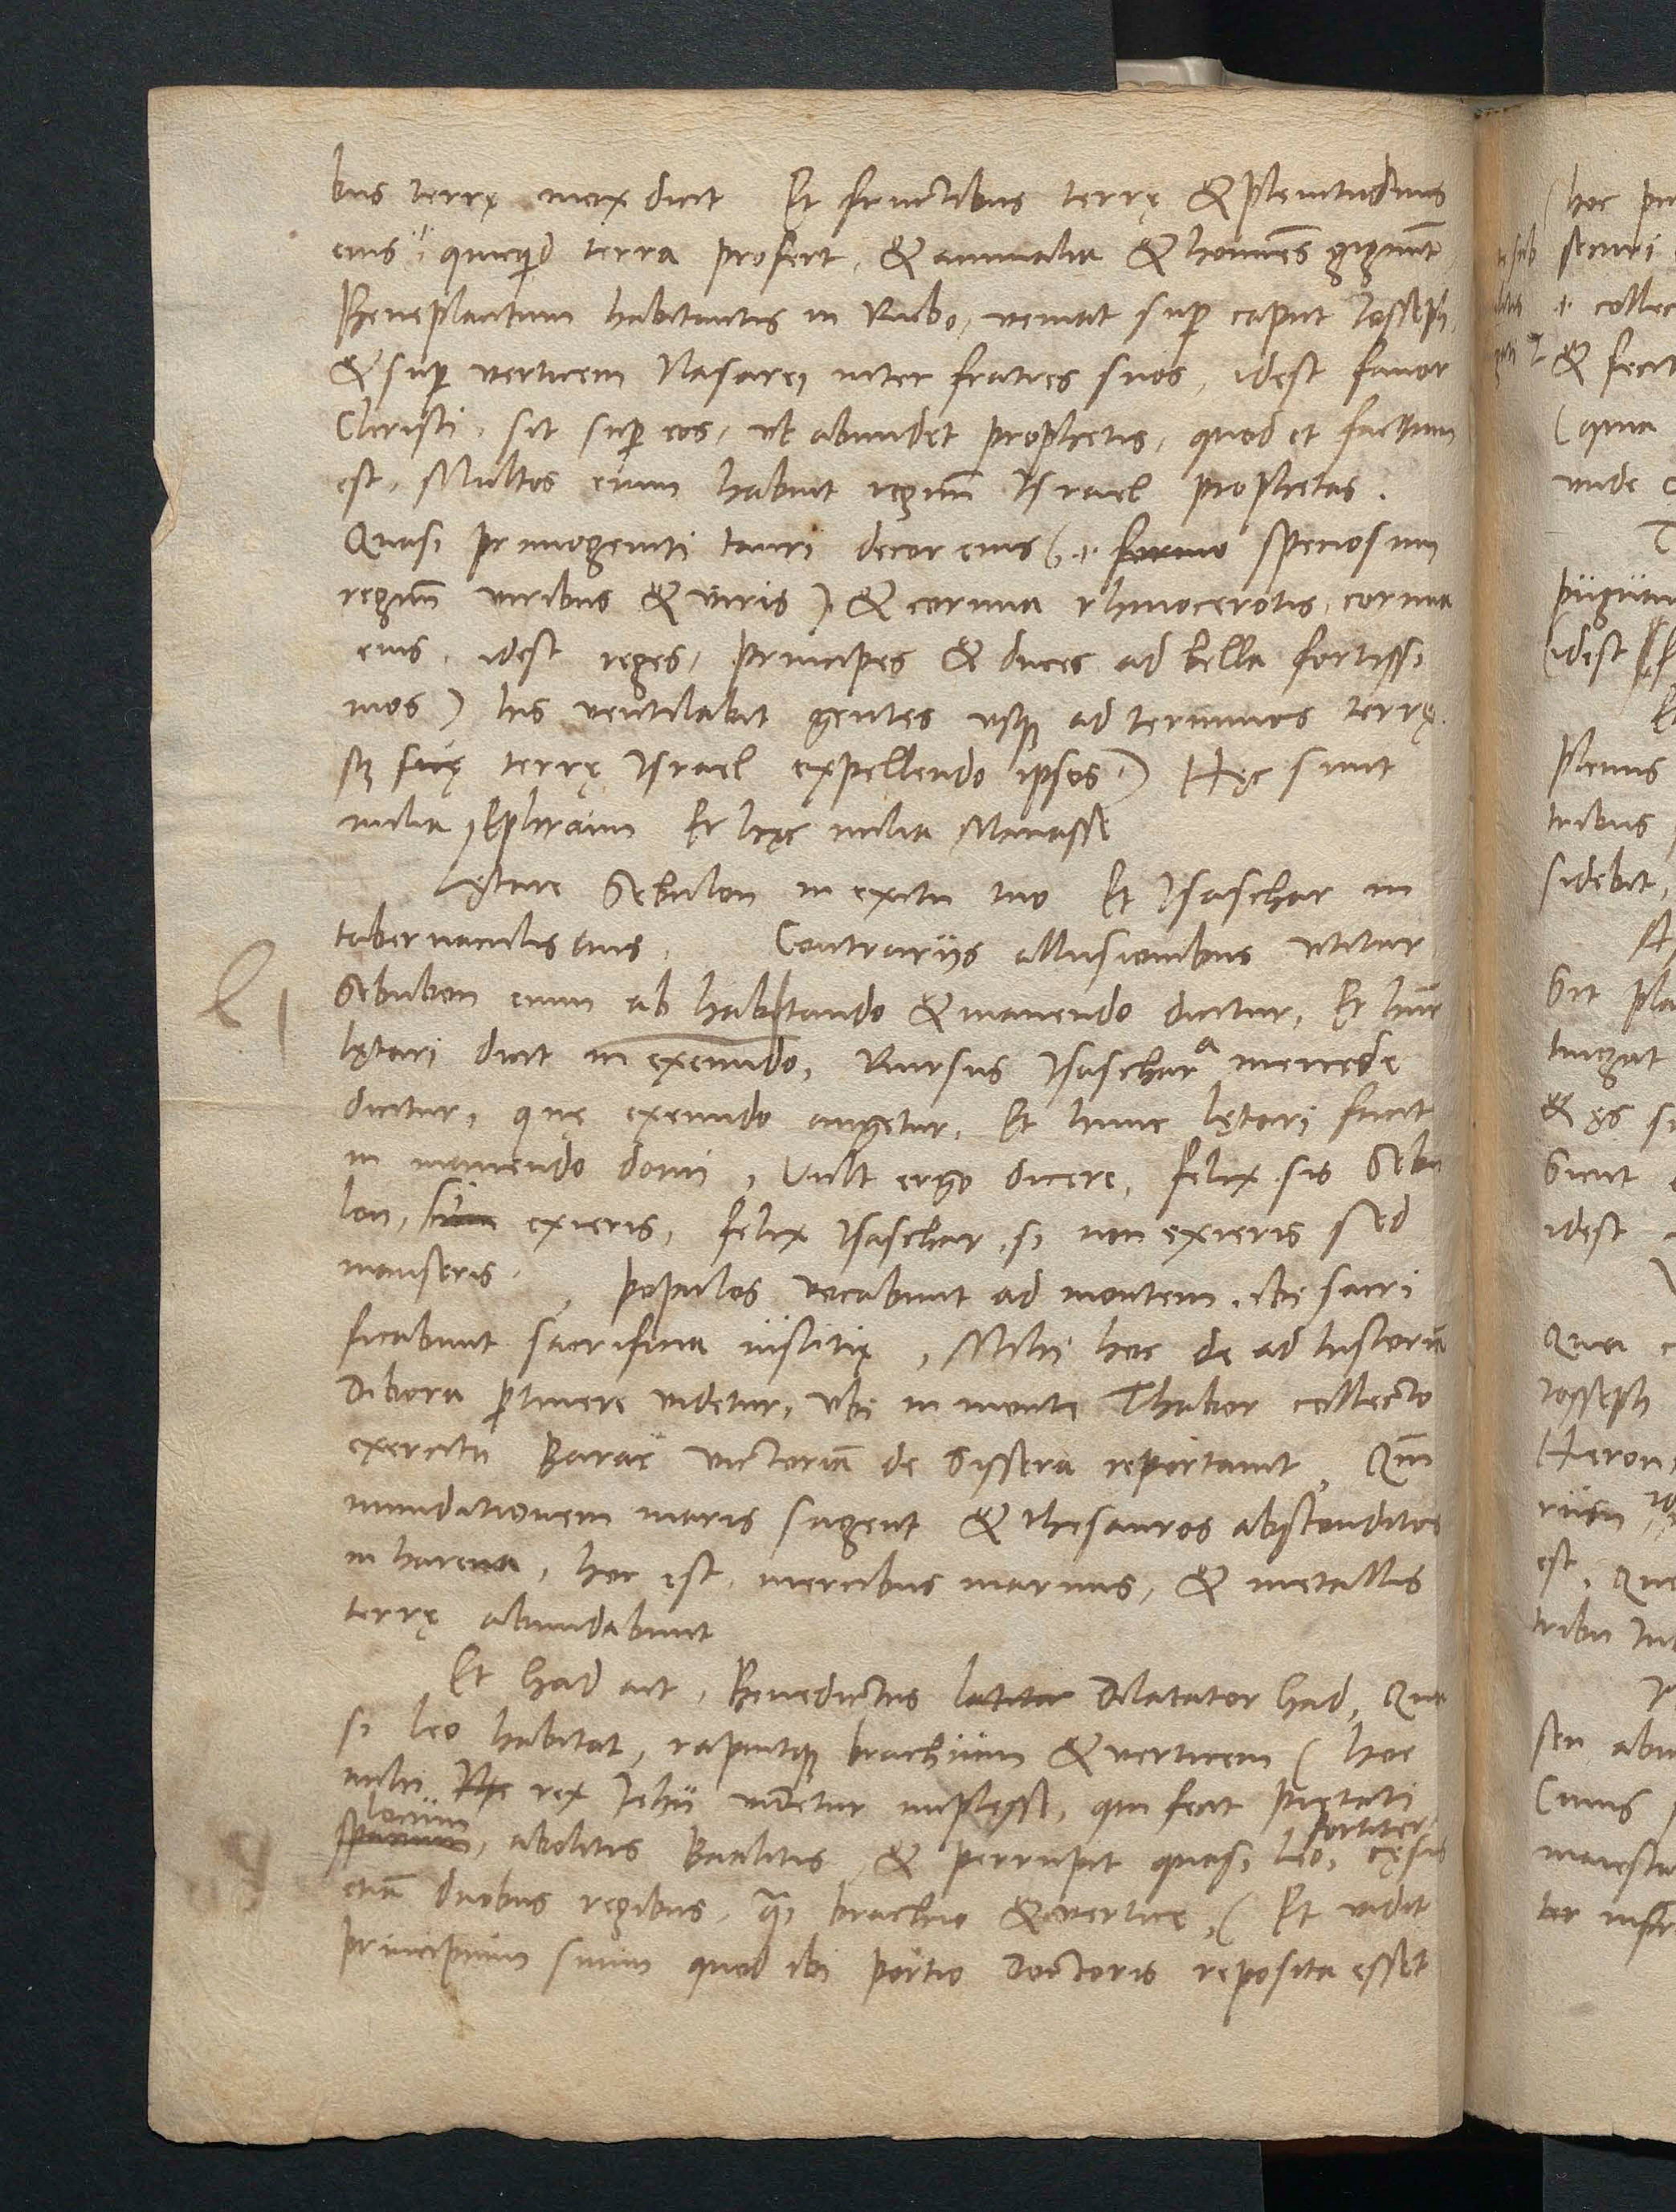 bus terrę mox dicit Et fructibus terrę & plenitudinis
eius .i. quicquid terra profert, & animalia & homines gignunt
Beneplacitum habitantis in Rubo, veniat sup caput Josseph,
& sup verticem Nasarei inter fratres suos, idest favor
Christi, sit sup eos, ut abundet prophetis, quod et factum
est, Multos enim habuit regnum Israel prophetas.
Quasi primogeniti tauri decor eius (.i. formo speciosum
regnum viribus & viris) & cornua rhinocerotis, cornua
eius, idest reges, principes & duces ad bella fortissi
mos) his ventilabit gentes usque ad terminos terrę
suę terrę Israel expellendo ipsos) Hęc sunt
milia Ephraim Et hęc milia Manasse
Lętare Sebulon in exitu tuo Et Isaschar in
tabernaculis tuis. Contrarijs allusionibus utitur
Sebulon enim ab habitando & manendo dicitur, Et hunc
lętari dicit in exeundo, Rursus Isaschar a mercede
dicitur, quę exeundo augetur, Et hunc lętari facit
in manendo domi, Vult ergo dicere, felix sis Sebu
lon, exieris, felix Isaschar, si non exieris sed
manseris. populos vocabunt ad montem, ibi sacri
ficabunt sacrificia iustitię, Mihi hoc de ad historiam
Dibora pertinere videtur, ubi in monte Thabor collecto
exercitu Barac victoriam de Sissera reportavit, Qm
inundationem maris sugent & thesauros absconditos
in harena, hoc est, mercibus marinis, & metallis
terrę abundabunt
Et Gad ait, Benedictus Dilatator Gad, Qua
si leo habitat, rapuitque brachium & verticem (hoc
mihi rex Jehu videtur implesse, qui fecit pietati
locum
spatium, abolitis Baalitis, & perrupit quasi leo, fortiter cęsis
etiam duobus regibus, qsi brachio & vertice, (Et vidit
principium suum quod ibi portio Doctoris reposita esset